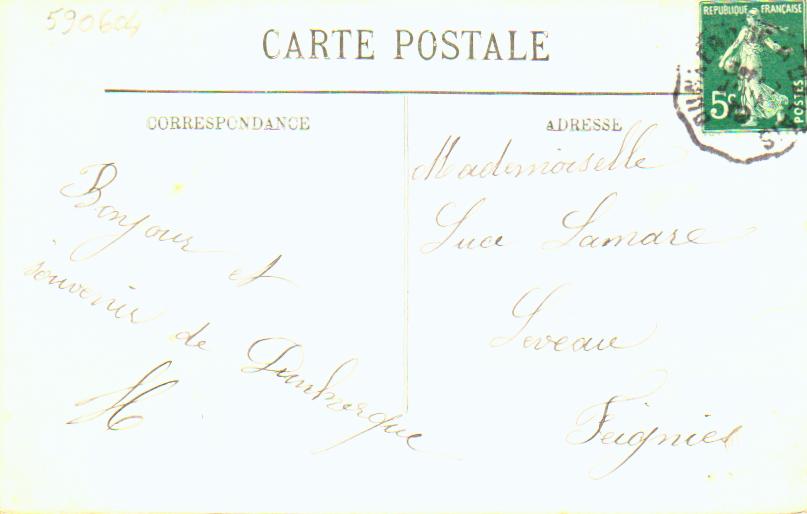 590604
CARTE POSTALE
REPUBLIQUE FRANÇAISE
5c
POSTES
CORRESPONDANCE
Bonjour et
souvenir de Dunkerque
H
ADRESSE
Mademoiselle
Luce Lamare
Leveau
Feignies